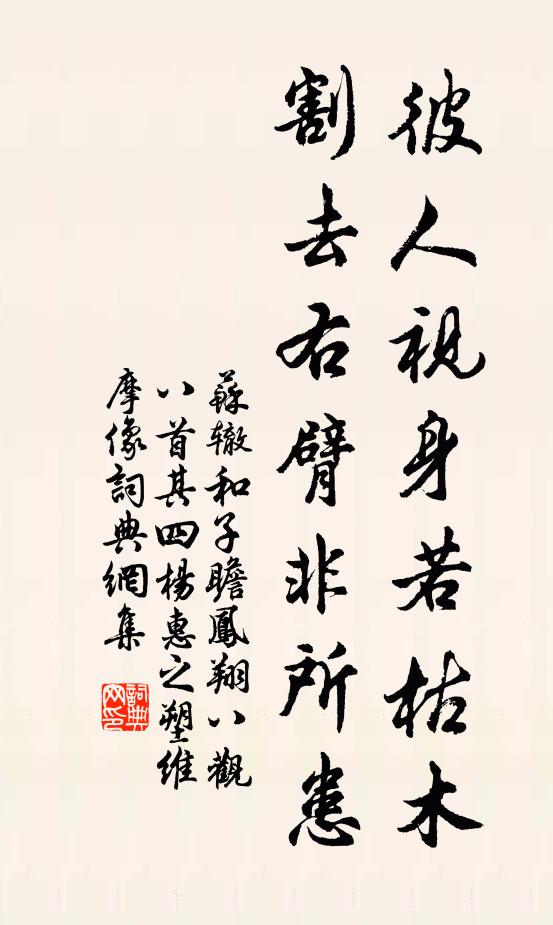 彼人視身若枯木
割去右臂非所患
蘇轍和子瞻鳳翔八觀
八首其四楊惠之塑維
摩像詞典網集
詞典
网印